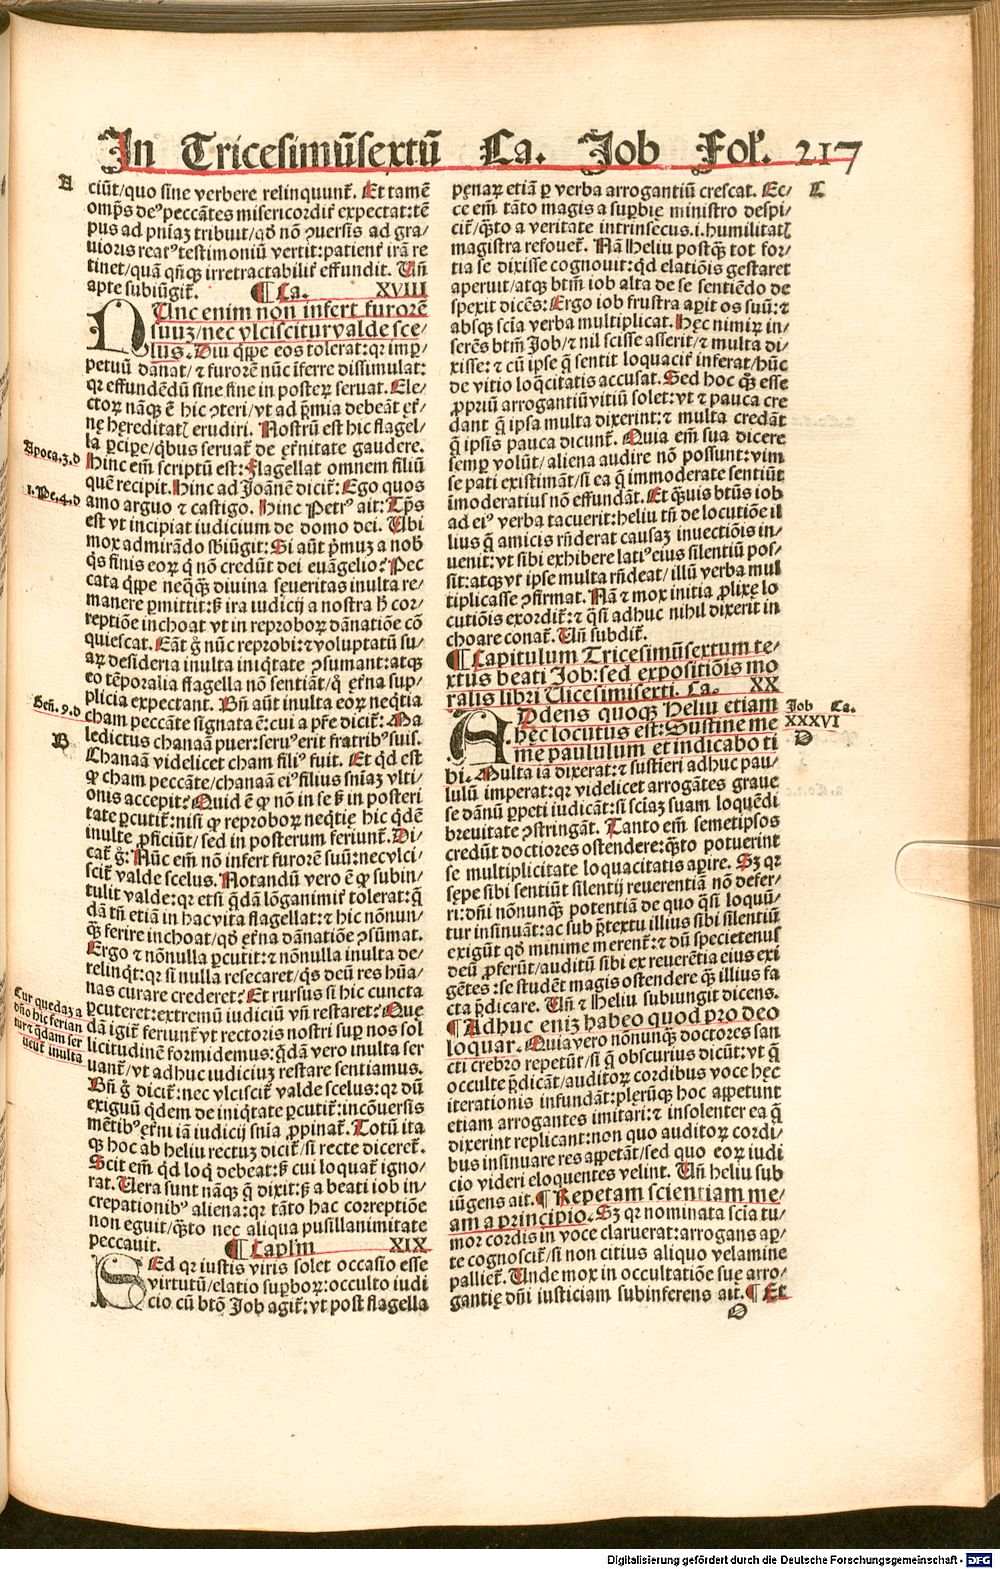 In Tricesimūsextū Ca. Job Fol. 217
A
ciūt/quo sine verbere relinquunt. Et tamē
omp̄s deꝰ peccātes misericordit̄ expectat: tē
pus ad pn̄iaꝫ tribuit/qd̄ nō ꝯuersis ad gra/
uioris reatꝰ testimoniū vertit: patient̄ irā re
tinet/quā qn̄qꝫ irretractabilit̄ effundit. Un̄
apte subiūgit. ¶ Ca. XVIII
NUnc enim non infert furorē
suuꝫ/nec vlciscitur valde sce/
lus. Diu q̄ppe eos tolerat: qr imꝑ/
petuū dānat/⁊ furorē nūc īferre dissimulat:
qr effundēdū sine fine in posteꝝ seruat. Ele/
ctoꝝ nāqꝫ ē hic ꝯteri/vt ad p̄mia debeāt et̄/
ne hereditat̄ erudiri. Nostrū est hic flagel/
la ꝑcipe/qbus seruat̄ de et̄nitate gaudere.
Apoca.3.d
Hinc em̄ scriptū est: Flagellat omnem filiū
quē recipit. Hinc ad Joānē dicit̄: Ego quos
1.Pe.4.d
amo arguo ⁊ castigo. Hinc Petrꝰ ait: Tp̄s
est vt incipiat iudicium de domo dei. Ubi
mox admirādo sb̄iūgit: Si aūt p̄muꝫ a nob̄
q̄s finis eoꝝ q̄ nō credūt dei euāgelio? Pec
cata q̄ppe neqꝗ̄ diuina seueritas inulta re/
manere ꝑmittit: sꝫ ira iudicij a nostra h̄ cor/
reptiōe inchoat vt in reproboꝝ dānatiōe cō
quiescat. Eāt g̊ nūc reprobi: ⁊ voluptatū su/
aꝝ desideria inulta iniq̄tate ꝯsumant: atqꝫ
eo tēporalia flagella nō sentiāt/q̊ et̄na sup/
plicia expectant. Bn̄ aūt inulta eoꝝ neq̄tia
Gen̄.9.d
cham peccāte signata ē: cui a pr̄e dicit̄: Ma
B
ledictus chanaā puer: seruꝰ erit fratribꝰ suis.
Chanaā videlicet cham filiꝰ fuit. Et qd̄ est
ꝙ cham peccāte/chanaā eiꝰ filius sn̄iaꝫ vlti/
onis accepit? Quid ē ꝙ nō in se sꝫ in posteri
tate ꝑcutit̄: nisi ꝙ reproboꝝ neq̄tie hic q̄dē
inulte ꝓficiūt/sed in posterum feriunt̄. Di/
cat̄ g̊: Nūc em̄ nō infert furorē suū: nec vlci/
scit̄ valde scelus. Notandū vero ē ꝙ subin/
tulit valde: qr etsi q̄dā lōganimit̄ tolerat: q̄
dā tn̄ etiā in hac vita flagellat: ⁊ hic nōnun/
qꝫ ferire inchoat/qd̄ et̄na dānatiōe ꝯsūmat.
Ergo ⁊ nōnulla ꝑcutit: ⁊ nōnulla inulta de/
relinq̄t: qr si nulla resecaret/q̄s deū res hūa/
nas curare crederet? Et rursus si hic cuncta
Cur quedaꝫ a
dn̄o hic ferian
tur ⁊ q̄dam ser
uent̄ inulta
ꝑcuteret: extremū iudiciū vn̄ restaret? Que
dā igit̄ feriunt̄ vt rectoris nostri suꝑ nos sol
licitudinē formidemus: q̄dā vero inulta ser
uant̄/vt adhuc iudiciuꝫ restare sentiamus.
Bn̄ g̊ dicit̄: nec vlciscit̄ valde scelus: qr dū
exiguū q̄dem de iniq̄tate ꝑcutit̄: incōuersis
mētibꝰ et̄ni iā iudicij sn̄ia ꝓpinat̄. Totū ita
qꝫ hoc ab heliu rectuꝫ dicit̄/si recte diceret̄.
Scit em̄ qd̄ loq̄ debeat: sꝫ cui loquat̄ igno/
rat. Uera sunt nāqꝫ q̄ dixit: sꝫ a beati iob in/
crepationibꝰ aliena: qr tāto hac correptiōe
non eguit/q̄to nec aliqua pusillanimitate
peccauit. ¶ Caplm̄ XIX
SEd qr iustis viris solet occasio esse
virtutū/elatio suꝑboꝝ: occulto iudi
cio cū btō Job agit̄: vt post flagella
penaꝝ etiā ꝑ verba arrogantiū crescat. Ec/
C
ce em̄ tāto magis a suꝑbie ministro despi/
cit̄/q̄to a veritate intrinsecus .i. humilitat̄
magistra refouet̄. Nā Heliu postqꝫ tot for/
tia se dixisse cognouit: qd̄ elatiōis gestaret
aperuit/atqꝫ btm̄ iob alta de se sentiēdo de
spexit dicēs: Ergo iob frustra aꝑit os suū: ⁊
absqꝫ scīa verba multiplicat. Hec nimiꝝ in/
serēs btm̄ Job/⁊ nil scisse asserit/⁊ multa di/
xisse: ⁊ cū ipse q̄ sentit loquacit̄ inferat/hūc
de vitio loq̄citatis accusat. Sed hoc qꝫ esse
ꝓpriū arrogantiū vitiū solet: vt ⁊ pauca cre
dant q̄ ipsa multa dixerint: ⁊ multa credāt
q̄ ipsis pauca dicunt̄. Quia em̄ sua dicere
semꝑ volūt/aliena audire nō possunt: vim
se pati existimāt/si ea q̄ immoderate sentiūt
īmoderatius nō effundāt. Et q̄uis btūs iob
ad eiꝰ verba tacuerit: heliu tn̄ de locutiōe il
lius q̄ amicis rn̄derat causaꝫ inuectiōis in/
uenit: vt sibi exhibere latiꝰ eius silentiū pos/
sit: atqꝫ vt ipse multa rn̄deat/illū verba mul
tiplicasse ꝯfirmat. Nā ⁊ mox initia ꝓlixe lo
cutiōis exordit̄: ⁊ q̄si adhuc nihil dixerit in
choare conat̄. Un̄ subdit̄.
¶ Capitulum Tricesimūsextum te/
xtus beati Job: sed expositiōis mo
ralis libri Uicesimisexti. Ca. XX
ADdens quoqꝫ Heliu etiam
Job Ca.
XXXVI
D
hec locutus est: Sustine me
me paululum et indicabo ti
bi. Multa iā dixerat: ⁊ sustieri adhuc pau/
lulū imperat: qr videlicet arrogātes graue
se dānū ꝑpeti iudicāt: si sciaꝫ suam loquēdi
breuitate ꝯstringāt. Tanto em̄ semetipsos
credūt doctiores ostendere: q̄to potuerint
se multiplicitate loquacitatis aꝑire. Sꝫ qr
sepe sibi sentiūt silentij reuerentiā nō defer/
ri: dn̄i nōnunqꝫ potentiā de quo q̄si loquū/
tur insinuāt: ac sub p̄textu illius sibi silentiū
exigūt qd̄ minime merent̄: ⁊ dū specietenus
deū ꝓferūt/auditū sibi ex reuerētia eius exi
gētes: se studēt magis ostendere qꝫ illius fa
cta p̄dicare. Un̄ ⁊ Heliu subiungit dicens.
¶ Adhuc eniꝫ habeo quod pro deo
loquar. Quia vero nōnunqꝫ doctores san
cti crebro repetūt/si q̄ obscurius dicūt: vt q̄
occulte p̄dicāt/auditoꝝ cordibus voce hec
iterationis infundāt: pleruqꝫ hoc appetunt
etiam arrogantes imitari: ⁊ insolenter ea q̄
dixerint replicant: non quo auditoꝝ cordi/
bus insinuare res appetāt/sed quo eoꝝ iudi
cio videri eloquentes velint. Un̄ heliu sub
iūgens ait. ¶ Repetam scientiam me/
am a principio. Sꝫ qr nominata scia tu/
mor cordis in voce claruerat: arrogans aꝑ/
te cognoscit̄/si non citius aliquo velamine
palliet̄. Unde mox in occultatiōe sue arro/
gantie dn̄i iusticiam subinferens ait. ¶ Et
O
Digitalisierung gefördert durch die Deutsche Forschungsgemeinschaft - DFG